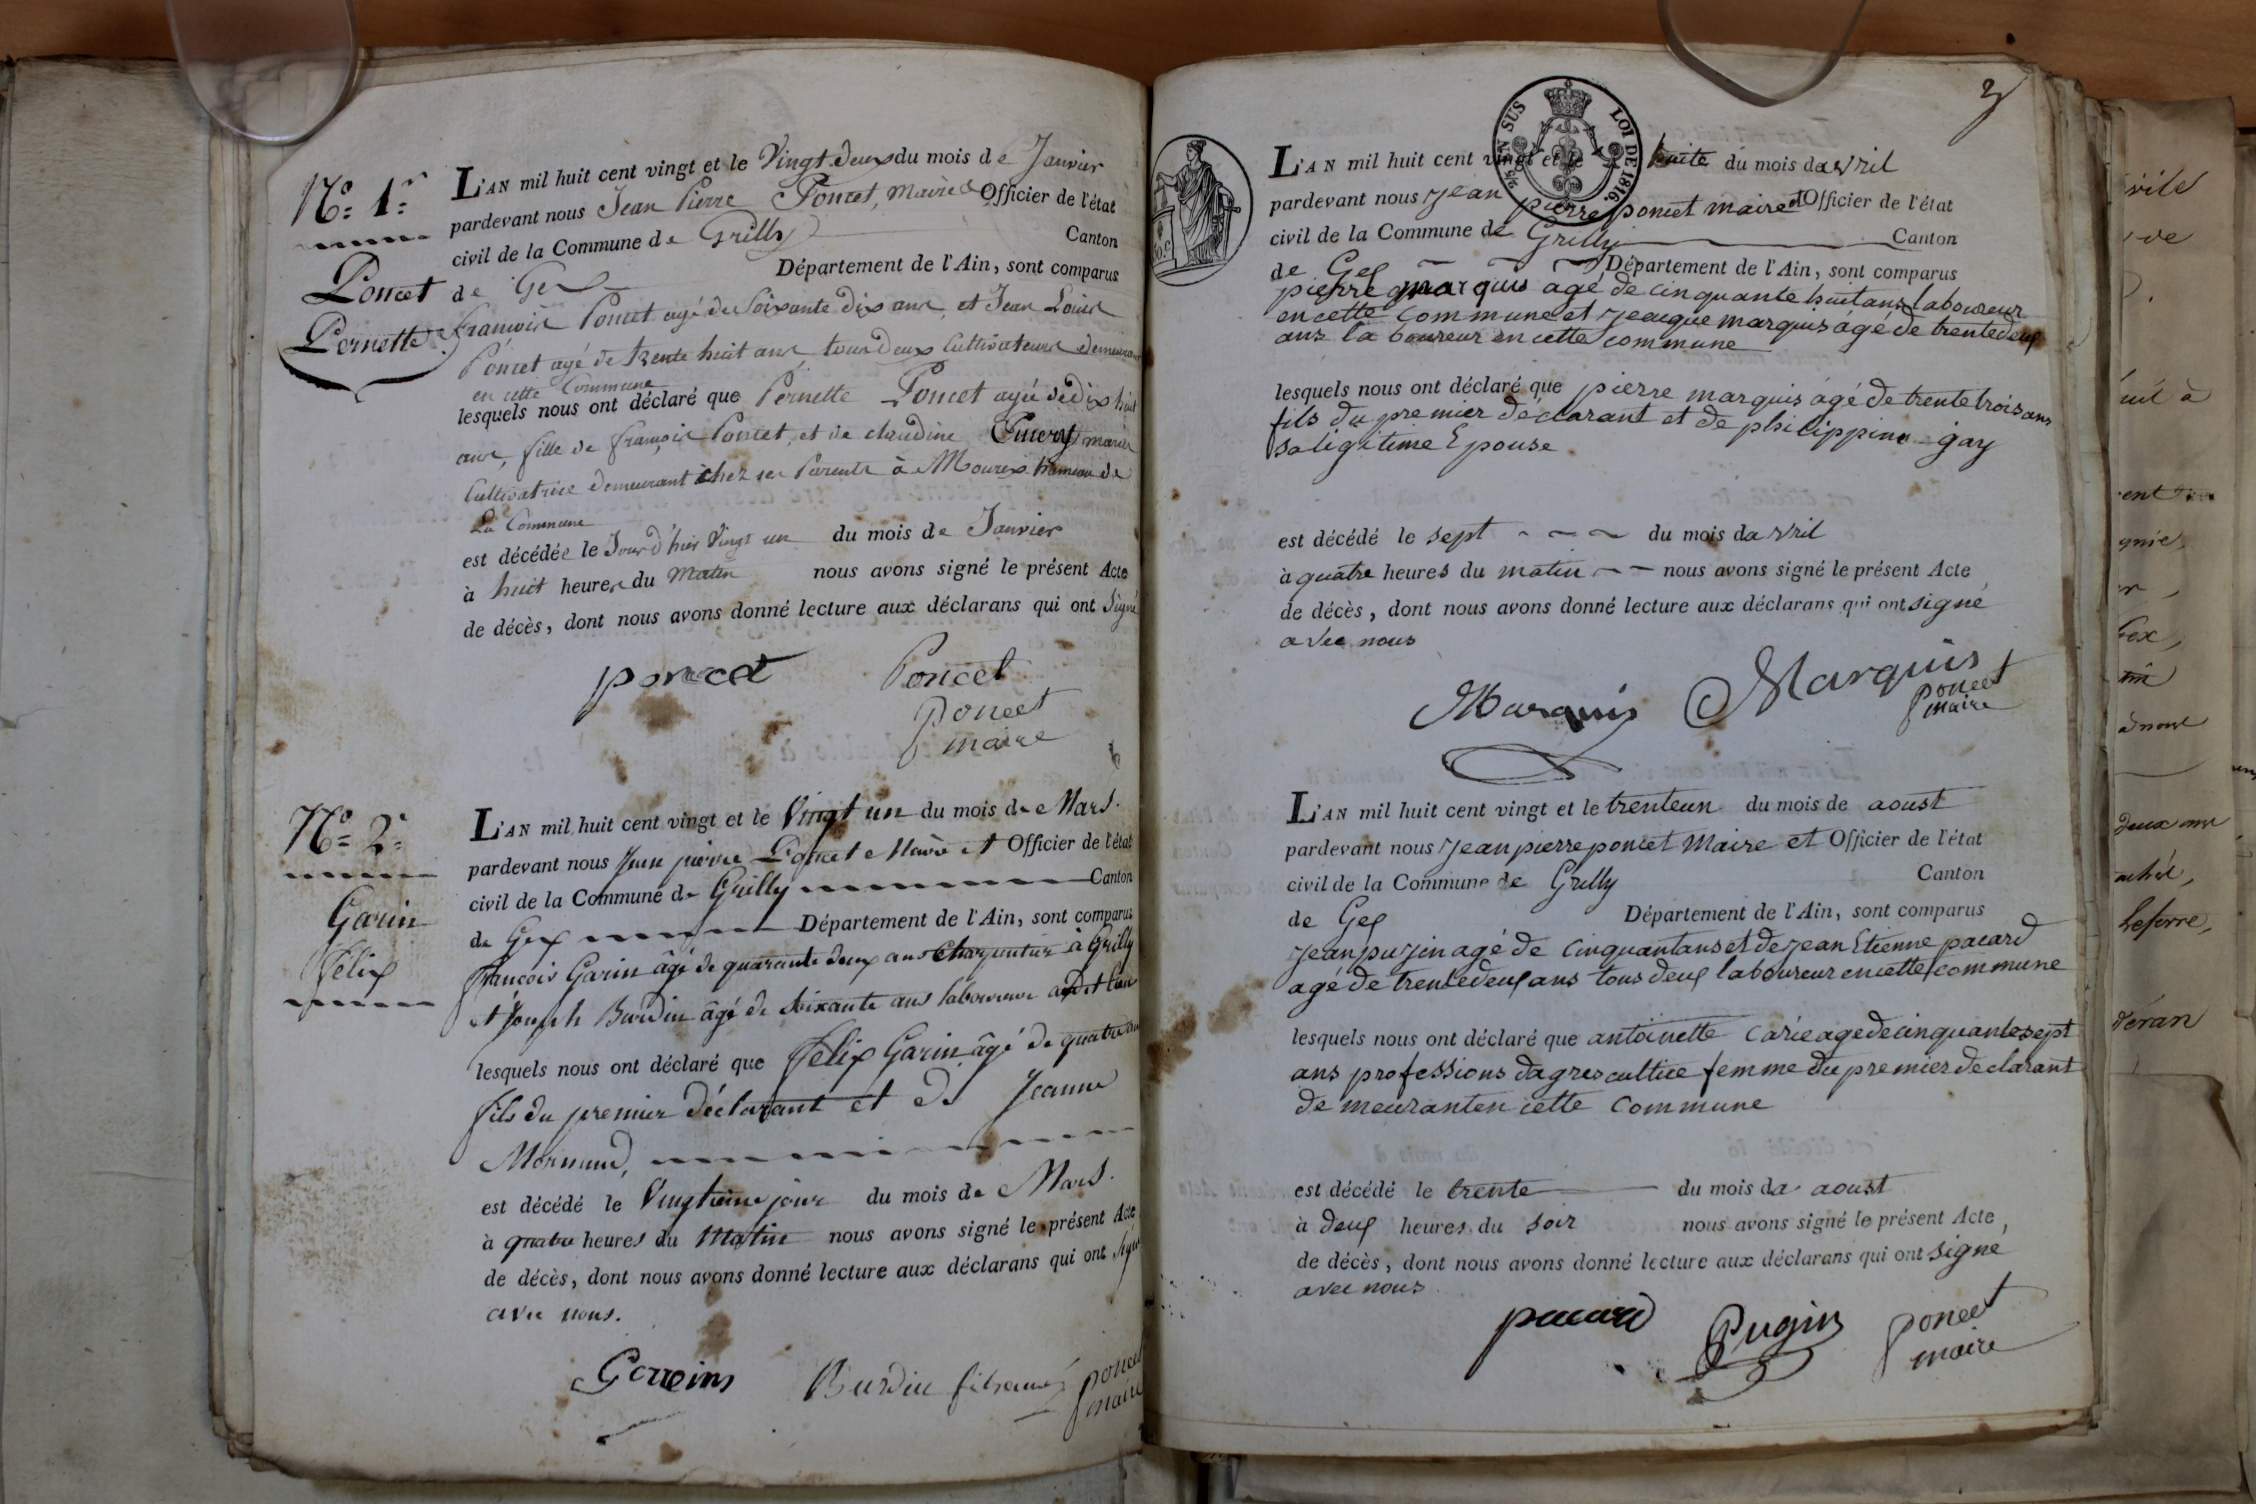 N.o 1.r
Poncet
Pernette
L'AN mil huit cent vingt et le Vingt deux du mois de Janvier
pardevant nous Jean Pierre Poncet, Maire & Officier de l'état
civil de la Commune de Grilly Canton
de Gex Département de l'Ain, sont comparus
françois Poncet agé de Soixante dix ans, et Jean Louis
Poncet agé de trente huit ans, tous deux Cultivateurs demeurant
en cette Commune
lesquels nous ont déclaré que Pernette Poncet agée de dix huit
ans, fille de françois Poncet, et de claudine Emery mariés
Cultivatrice demeurant chez ses Parents à Mourex hameau de
La Commune
est décédée le Jour d'hier Vingt un du mois de Janvier
à huit heures du Matin nous avons signé le présent Acte
de décès, dont nous avons donné lecture aux déclarans qui ont Signé
poncet Poncet
poncet
maire
N.o 2.
Garin
félix
L'AN mil huit cent vingt et le Vingt un du mois de Mars.
pardevant nous Jean pierre Poncet Maire et Officier de l'état
civil de la Commune de Grilly Canton
de Gex Département de l'Ain, sont comparus
françois Garin âgé de quarante deux ans Charpentier à Grilly
et Joseph Burdin âgé de soixante ans laboureur audit lieu
lesquels nous ont déclaré que félix Garin âgé de quatre ans
fils du premier déclarant et de Jeanne
Mornand,
est décédé le Vingtieme jour du mois de Mars.
à quatre heures du Matin nous avons signé le présent Acte
de décès, dont nous avons donné lecture aux déclarans qui ont signé
avec nous.
Burdin poncet
maire
3
2/5 EN SUS LOI DE 1816.
L'AN mil huit cent vingt et le huite du mois davril
pardevant nous jean pierre poncet maire et Officier de l'état
civil de la Commune de Grilly Canton
de Gex Département de l'Ain, sont comparus
pierre marquis agé de cinquante huit ans laboureur
en cette commune et jeacque marquis ágé de trentedeux
ans la boureur en cette commune
lesquels nous ont déclaré que pierre marquis ágé de trentetrois ans
fils du premier déclarant et de philippine gay
sa ligitime Epouse
est décédé le sept du mois davril
à quatre heures du matin nous avons signé le présent Acte
de décès, dont nous avons donné lecture aux déclarans qui ont signé
avec nous
Marquis Marquis
poncet
maire
L'AN mil huit cent vingt et le trenteun du mois de aoust
pardevant nous jean pierre poncet Maire et Officier de l'état
civil de la Commune de Grilly Canton
de Gex Département de l'Ain, sont comparus
jean pujin agé de cinquantans et de jean Etienne pacard
agé de trentedeux ans tous deux laboureur en cette commune
lesquels nous ont déclaré que antoinette carie age de cinquantesept
ans professions dagrescultice femme du premier declarant
de meuranten cette commune
est décédé le trente du mois da aoust
à deux heures du soir nous avons signé le présent Acte
de décès, dont nous avons donné lecture aux déclarans qui ont signé
avec nous
pacard Pugin poncet
maire